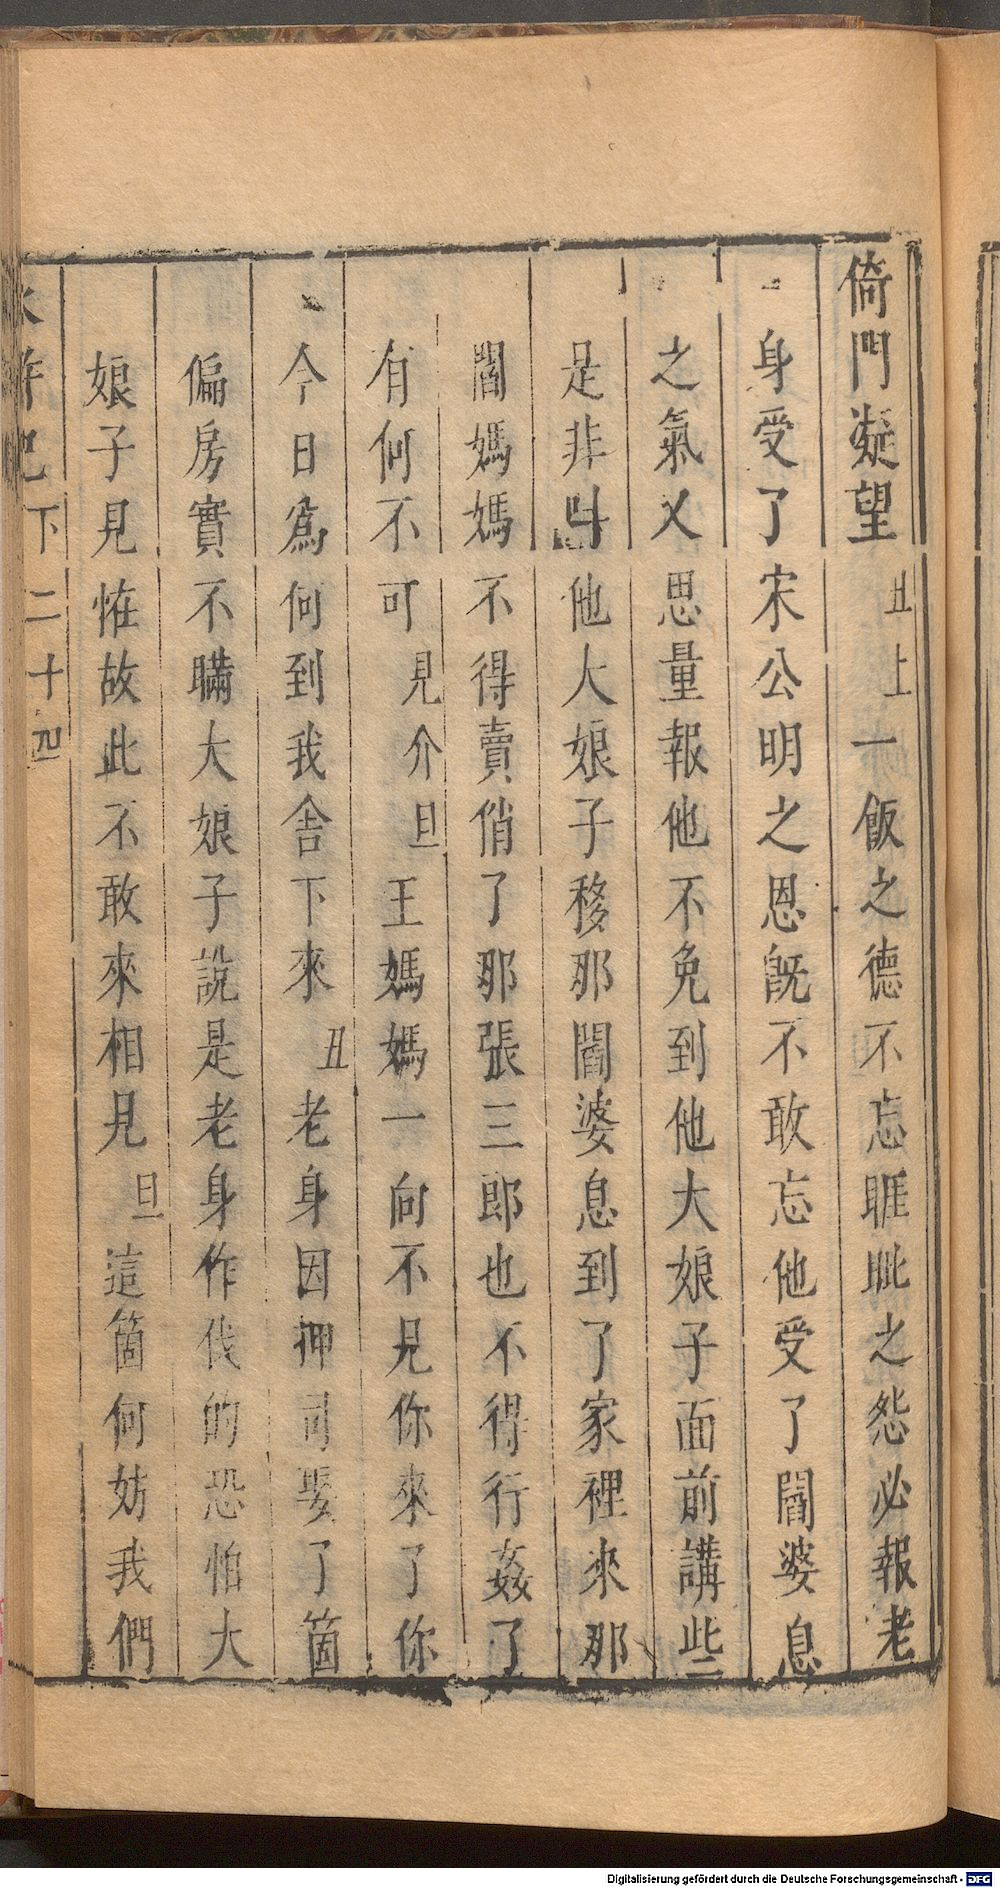 倚門凝望丑上一飯之德不忘睚眦之怨必報老
身受了宋公明之恩旣不敢忘他受了閻婆息
之氣乂思量報他不免到他大娘子面前講些
是非呌他大娘子移那閻婆息到了家裡來那
閻媽媽不得賣俏了那張三郎也不得行姦了
有何不可見介旦王媽媽一向不見你來了你
今日爲何到我舍下來丑老身因押司娶了箇
偏房實不瞞大娘子說是老身作伐的恐怕大
娘子見恠故此不敢來相見旦這箇何妨我們
水滸記下二十四
Digitalisierung gefördert durch die Deutsche Forschungsgemeinschaft - DFG